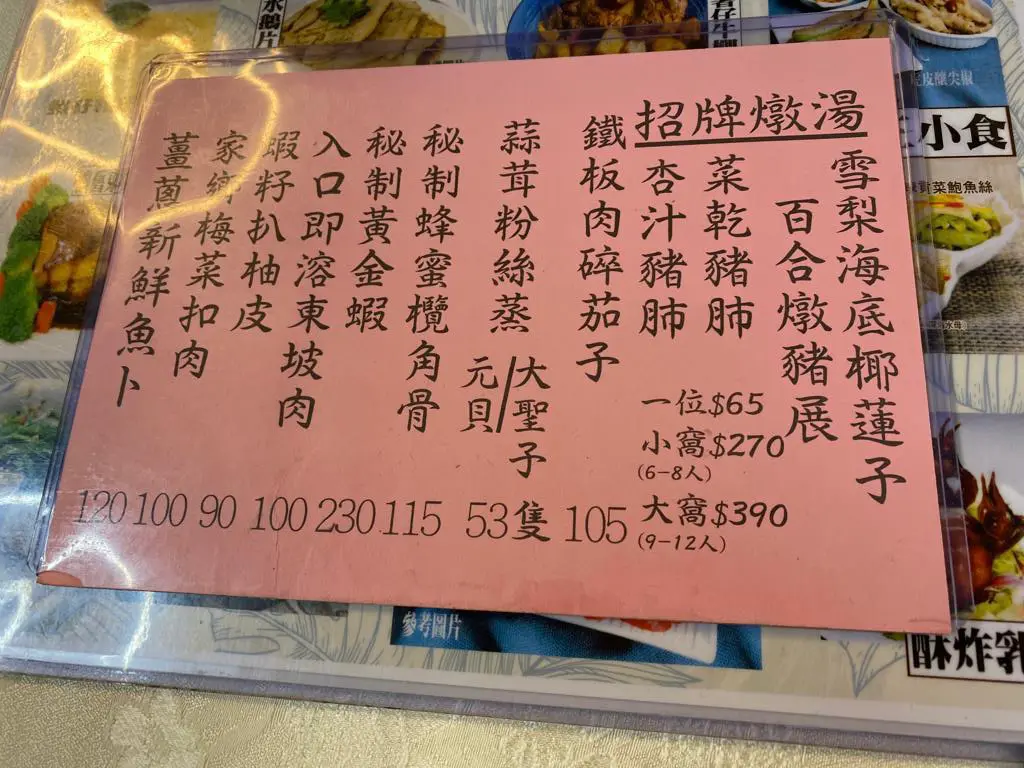 招牌燉湯
雪梨海底椰蓮子
百合燉豬展
菜乾豬肺
杏汁豬肺
一位$65
小窩$270
(6-8人)
大窩$390
(9-12人)
鐵板肉碎茄子
105
蒜茸粉絲蒸
大聖子/元貝
53隻
秘制蜂蜜欖角骨
115
秘制黃金蝦
230
入口即溶東坡肉
100
蝦籽扒柚皮
90
家鄉梅菜扣肉
100
薑蔥新鮮魚卜
120
小食
貢菜鮑魚絲
參考圖片
酥炸乳